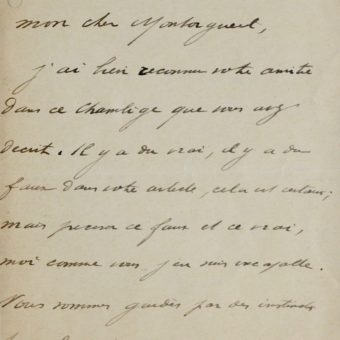 mon cher Montorgueil,
j'ai bien reconnu votre amitié
dans ce Chambige que vous avez
décrit. Il y a du vrai, il y a du
faux dans votre article, cela est certain;
mais préciser ce faux et ce vrai,
moi comme vous j'en suis incapable.
Nous sommes guidés par des instincts